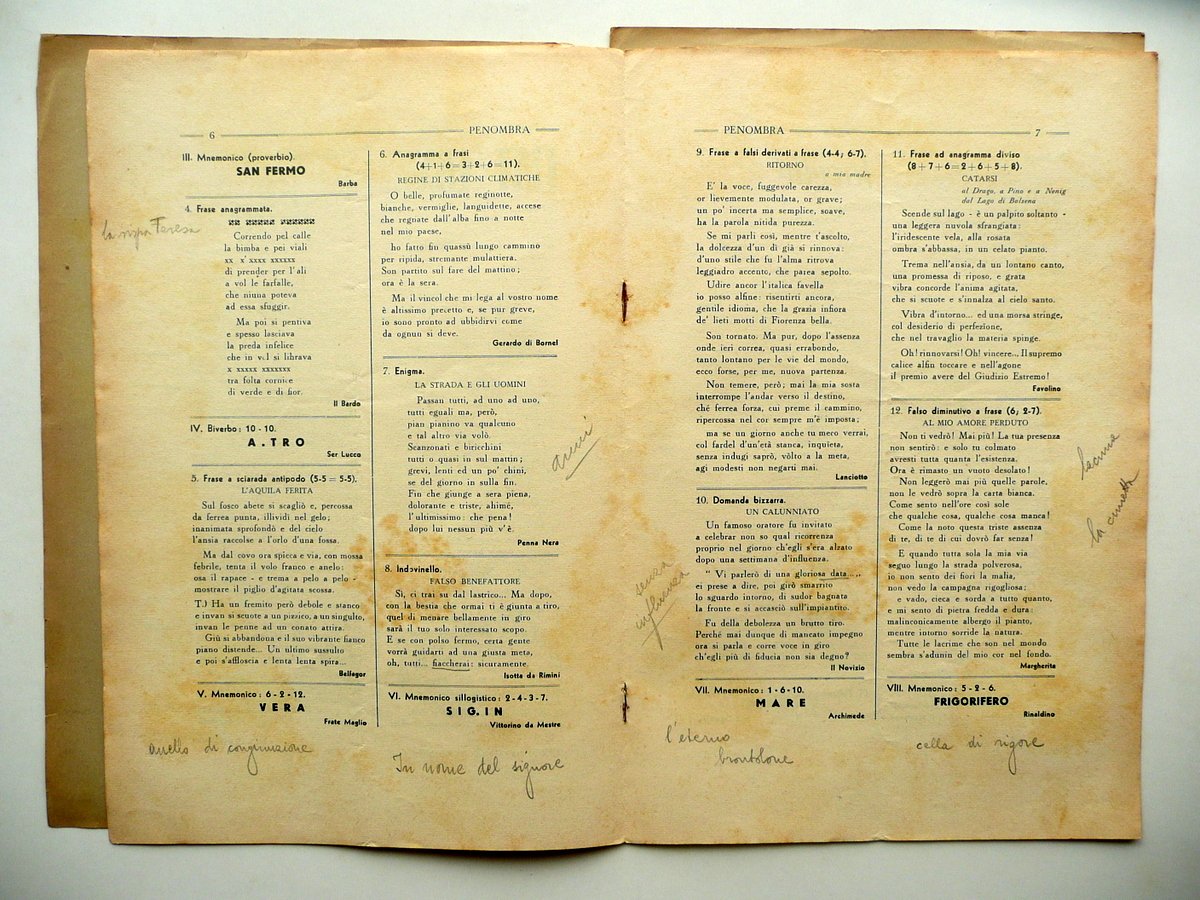 6
PENOMBRA
III. Mnemonico (proverbio).
SAN FERMO
Barba
4. Frase anagrammata.
xx xxxxx xxxxxx
la nipa Teresa
Correndo pel calle
la bimba e pei viali
xx x'xxxx xxxxxx
di prender per l'ali
a vol le farfalle,
che niuna poteva
ad essa sfuggir.
Ma poi si pentiva
e spesso lasciava
la preda infelice
che in vol si librava
x xxxxx xxxxxxx
tra folta cornice
di verde e di fior.
Il Bardo
IV. Biverbo: 10 - 10.
A . TRO
Ser Lucco
5. Frase a sciarada antipodo (5-5 = 5-5).
L'AQUILA FERITA
Sul fosco abete si scagliò e, percossa
da ferrea punta, illividì nel gelo;
inanimata sprofondò e del cielo
l'ansia raccolse a l'orlo d'una fossa.
Ma dal covo ora spicca e via, con mossa
febrile, tenta il volo franco e anelo:
osa il rapace - e trema a pelo a pelo -
mostrare il piglio d'agitata scossa.
T.) Ha un fremito però debole e stanco
e invan si scuote a un pizzico, a un singulto,
invan le penne ad un conato attira.
Giù si abbandona e il suo vibrante fianco
piano distende... Un ultimo sussulto
e poi s'affloscia e lenta lenta spira...
Bellagor
V. Mnemonico: 6 - 2 - 12.
VERA
Frate Maglio
anello di congiunzione
6. Anagramma a frasi
(4+1+6=3+2+6=11).
REGINE DI STAZIONI CLIMATICHE
O belle, profumate reginotte,
bianche, vermiglie, languidette, accese
che regnate dall'alba fino a notte
nel mio paese,
ho fatto fin quassù lungo cammino
per ripida, stremante mulattiera.
Son partito sul fare del mattino;
ora è la sera.
Ma il vincol che mi lega al vostro nome
è altissimo precetto e, se pur greve,
io sono pronto ad ubbidirvi come
da ognun si deve.
Gerardo di Bornel
7. Enigma.
LA STRADA E GLI UOMINI
Passan tutti, ad uno ad uno,
tutti eguali ma, però,
pian pianino va qualcuno
e tal altro via volò.
Scanzonati e biricchini
tutti o quasi in sul mattin;
grevi, lenti ed un po' chini,
se del giorno in sulla fin.
Fin che giunge a sera piena,
dolorante e triste, ahimè,
l'ultimissimo: che pena!
dopo lui nessun più v'è.
Penna Nera
anni
8. Indovinello.
FALSO BENEFATTORE
Sì, ci trai su dal lastrico... Ma dopo,
con la bestia che ormai ti è giunta a tiro,
quel di menare bellamente in giro
sarà il tuo solo interessato scopo.
E se con polso fermo, certa gente
vorrà guidarti ad una giusta meta,
oh, tutti... fiaccherai: sicuramente.
Isotta da Rimini
VI. Mnemonico sillogistico: 2 - 4 - 3 - 7.
SIG. IN
Vittorino da Mestre
In nome del signore
PENOMBRA
7
9. Frase a falsi derivati a frase (4-4; 6-7).
RITORNO
a mia madre
E' la voce, fuggevole carezza,
or lievemente modulata, or grave;
un po' incerta ma semplice, soave,
ha la parola nitida purezza.
Se mi parli così, mentre t'ascolto,
la dolcezza d'un dì già si rinnova:
d'uno stile che fu l'alma ritrova
leggiadro accento, che parea sepolto.
Udire ancor l'italica favella
io posso alfine: risentirti ancora,
gentile idioma, che la grazia infiora
de' lieti motti di Fiorenza bella.
Son tornato. Ma pur, dopo l'assenza
onde ieri correa, quasi errabondo,
tanto lontano per le vie del mondo,
ecco forse, per me, nuova partenza.
Non temere, però; mai la mia sosta
interrompe l'andar verso il destino,
ché ferrea forza, cui preme il cammino,
ripercossa nel cor sempre m'è imposta;
ma se un giorno anche tu meco verrai,
col fardel d'un'età stanca, inquieta,
senza indugi saprò, vòlto a la meta,
agi modesti non negarti mai.
Lanciotto
10. Domanda bizzarra.
UN CALUNNIATO
Un famoso oratore fu invitato
a celebrar non so qual ricorrenza
proprio nel giorno ch'egli s'era alzato
dopo una settimana d'influenza.
" Vi parlerò di una gloriosa data....,
ei prese a dire, poi girò smarrito
lo sguardo intorno, di sudor bagnata
la fronte e si accasciò sull'impiantito.
Fu della debolezza un brutto tiro.
Perché mai dunque di mancato impegno
ora si parla e corre voce in giro
ch'egli più di fiducia non sia degno?
Il Novizio
senza
influenza
VII. Mnemonico: 1 - 6 - 10.
MARE
Archimede
l'eterno
brontolone
11. Frase ad anagramma diviso
(8+7+6=2+6+5+8).
CATARSI
al Drago, a Pino e a Nonig
dal Lago di Bolsena
Scende sul lago - è un palpito soltanto -
una leggera nuvola sfrangiata:
l'iridescente vela, alla rosata
ombra s'abbassa, in un celato pianto.
Trema nell'ansia, da un lontano canto,
una promessa di riposo, e grata
vibra concorde l'anima agitata,
che si scuote e s'innalza al cielo santo.
Vibra d'intorno... ed una morsa stringe,
col desiderio di perfezione,
che nel travaglio la materia spinge.
Oh! rinnovarsi! Oh! vincere... Il supremo
calice alfin toccare e nell'agone
il premio avere del Giudizio Estremo!
Favolino
12. Falso diminutivo a frase (6; 2-7).
AL MIO AMORE PERDUTO
Non ti vedrò! Mai più! La tua presenza
non sentirò: e solo tu colmato
avresti tutta quanta l'esistenza.
Ora è rimasto un vuoto desolato!
Non leggerò mai più quelle parole,
non le vedrò sopra la carta bianca.
Come sento nell'ore così sole
che qualche cosa, qualche cosa manca!
Come la noto questa triste assenza
di te, di te di cui dovrò far senza!
E quando tutta sola la mia via
seguo lungo la strada polverosa,
io non sento dei fiori la malia,
non vedo la campagna rigogliosa;
e vado, cieca e sorda a tutto quanto,
e mi sento di pietra fredda e dura:
malinconicamente albergo il pianto,
mentre intorno sorride la natura.
Tutte le lacrime che son nel mondo
sembra s'adunin del mio cor nel fondo.
Margherita
lacuna
la cunetta
VIII. Mnemonico: 5 - 2 - 6.
FRIGORIFERO
Rinaldino
cella di rigore